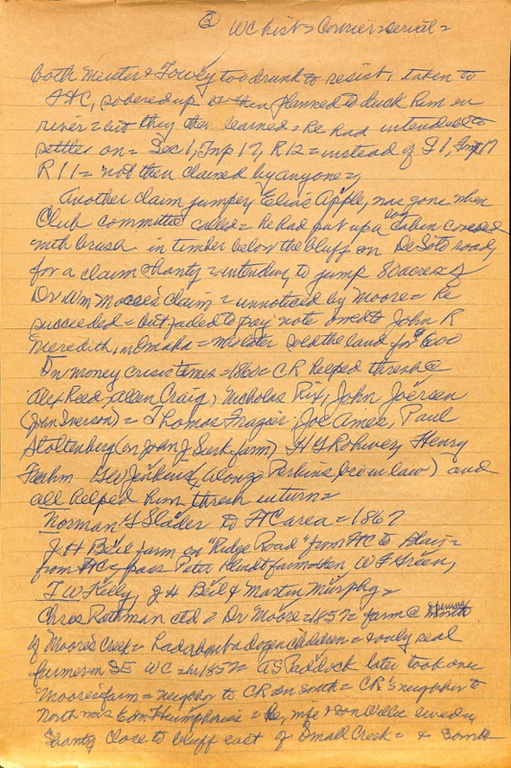 ③ WC hist = Courier = serial =
both Meuter & Towey too drunk to resist, taken to
FtC, sobered up & then planned to duck him in
river = but they then learned = he had intended to
settle on = Sec 1, Twp 17, R12 = instead of S1, Twp 17
R11 = not then claimed by anyone =
Another claim jumper, Elias Apple, was gone when
Club committee called = he had put up a log cabin covered
with brush in timber below the bluff on DeSoto road
for a claim shanty = intending to jump 80 acres of
Dr Wm Moore's claim = unnoticed by Moore = he
succeeded = but failed to pay note owed to John R
Meredith, in Omaha = m later sold the land for $600
In money crisis times = 1860 = CR helped thresh @
Alex Reed, Allen Craig, Nicholas Rix, John Joersen
(John Iverson) = Thomas Frazier, Joe Ames, Paul
Stoltenberg (on John J Surk farm) H G Rohwer, Henry
Frahm Geo Jenkins (Alonzo Perkins, bro in law) and
all helped him thresh in turn =
Norman G Slader to FtC area = 1867
J H Beil farm on "Ridge Road" from FtC to Blair =
from FtC = pass Peter Klindt farm then W F Green,
T W Kelly, J H Beil & Martin Murphy =
Chris Rathman ctd = Dr Moore = 1857 = farm @
of Moore's Creek = had about a dozen children = & only real
farmer in SE WC = in 1857 = AS Paddock later took over
Moore's farm = neighbor to CR on south = CR's neighbor to
North was Edm Humphries = he, wife & son Willie lived in
shanty close to bluff east of Small Creek = &